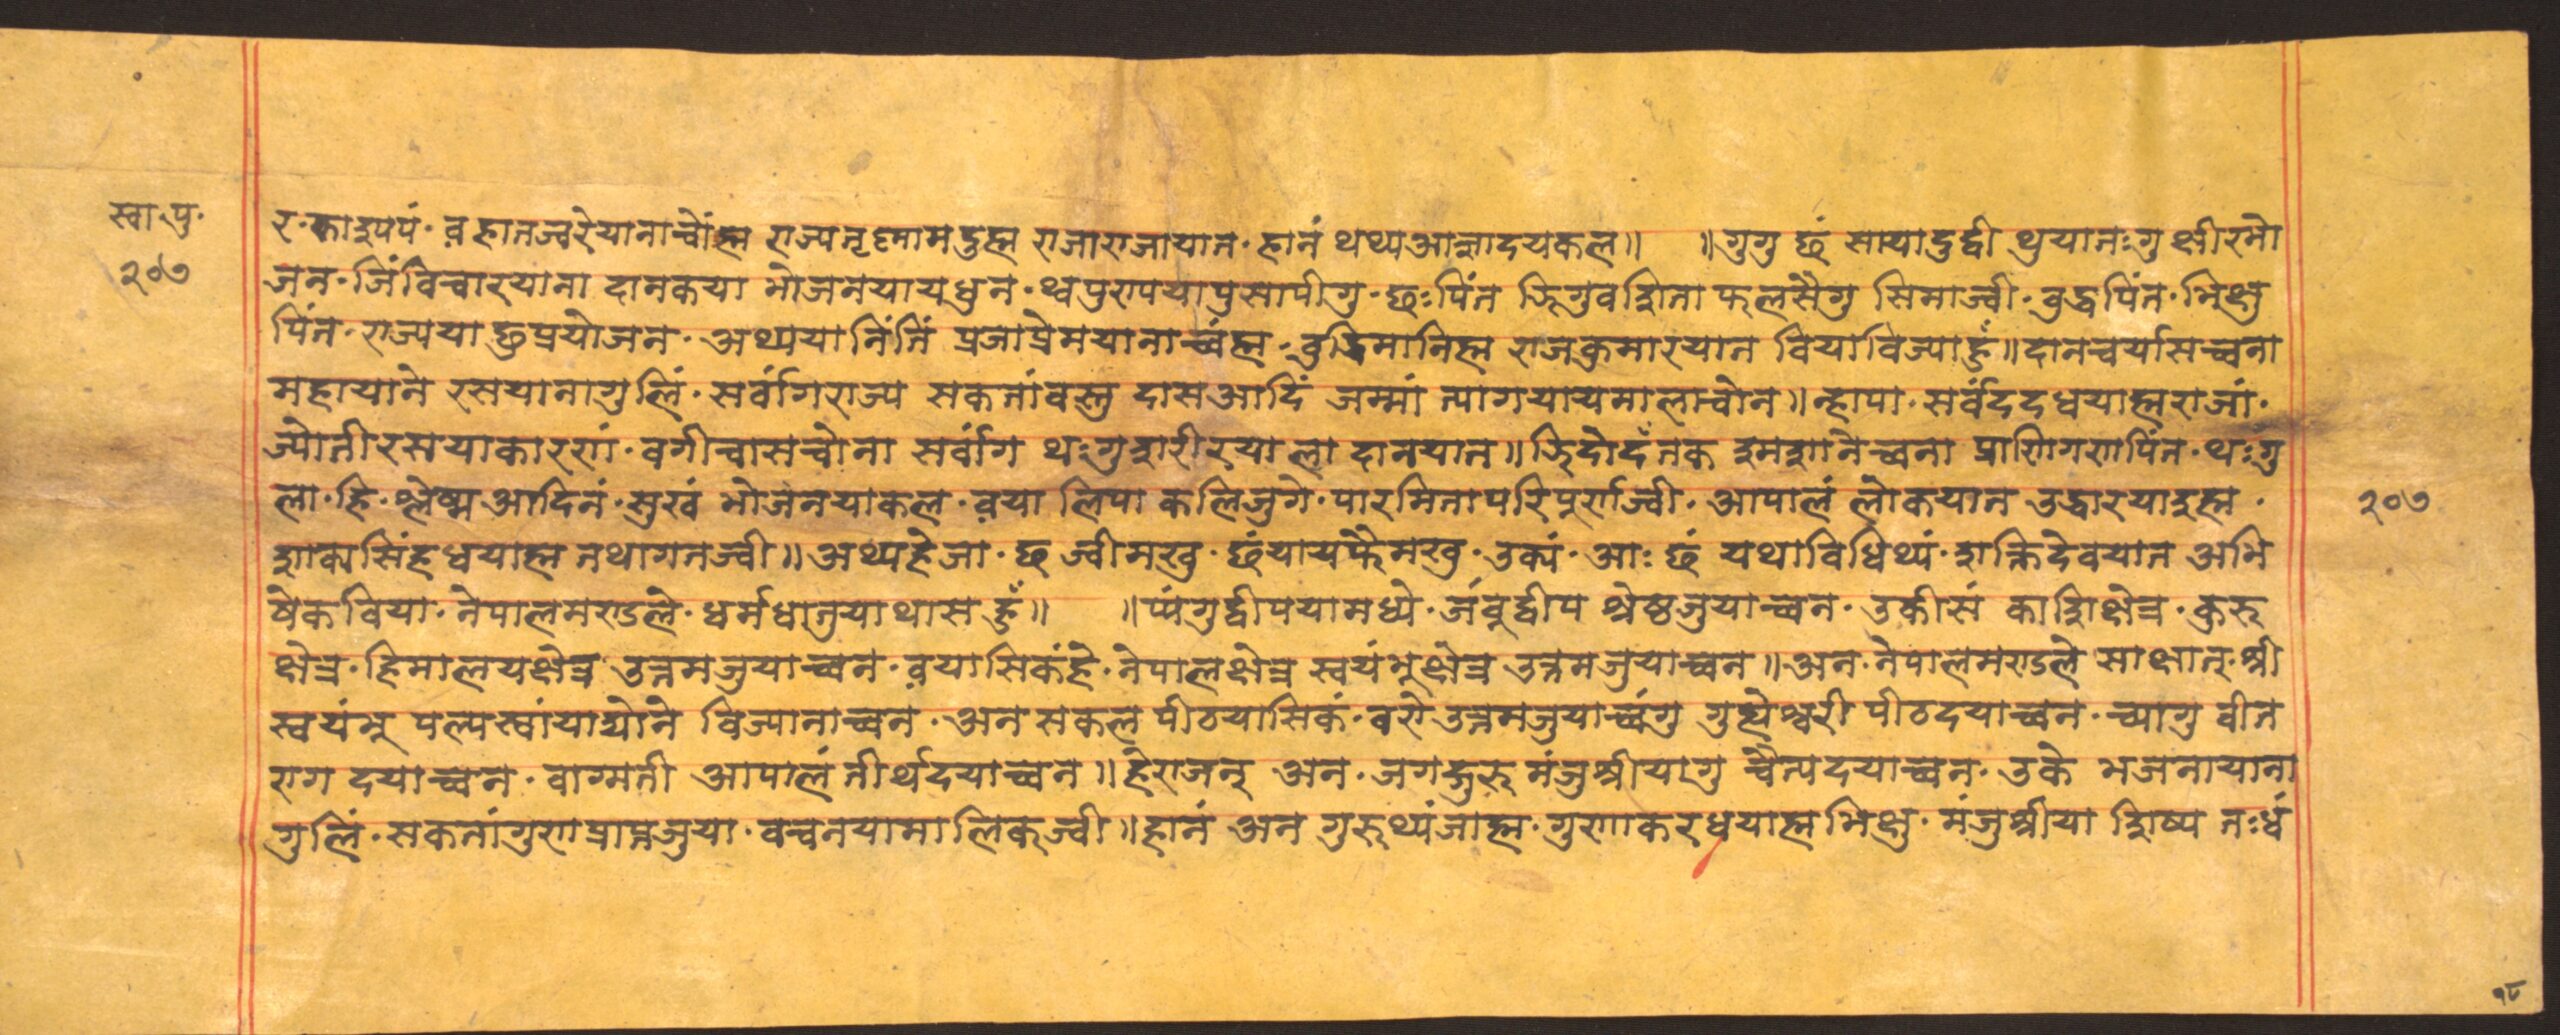 स्वा.पु.
२०७
र॰काडुपपं॰व़हानज्वरेयानाच्वोंह्म राज्यतृष्णामदुह्म राजाराजायात॰हानं थथ्यआज्ञादयकल॥ ॥गुगु छं सायादुद्वी थुयातःगु क्षीरभो
जन॰जिं विचारयाना दानकया भोजनयायधुन॰थ्वपुरापया पुसापीगु॰छःपिंत जिगुवशिता फलसैगु सिमाज्वी॰बुद्धपिंत॰भिक्षु
पिंत॰राज्यया छुप्रयोजन॰अथ्यया निंतिं प्रजाप्रेमयानाच्वंह्म॰बुद्धिमानिह्म राजकुमारयात वियाविज्याहुँ॥दानचर्यासच्वना
महायाने रसयानागुलिं॰सर्वांगराज्य सकतांवस्तु दासआदिं जम्मां त्यागयायमालाच्वोन॥न्हापा॰सर्वंददधयाह्मराजां॰
ज्योतीरसयाकारणं॰वगीचासच्वोना सर्वांग थःगुशरीरयाला दानयात॥जिदोदंतक श्मशानेच्वना प्राणिगणपिंत॰थःगु
ला॰हि॰श्लेष्मआदिनं॰सुखं भोजनयाकल॰व़या लिपा कलिजुगे॰पारमितापरिपूर्णज्वी॰आपालं लोकयात उद्धारयाइह्म॰
शाक्यसिंहधयाह्म तथागतज्वी॥अथ्यहेजा॰छ ज्वीमखु॰छंयायफैमखु॰उक्यं॰आः छं यथाविधिथ्यं॰शक्तिदेवयात अभि
षेकविया॰नेपालमण्डले॰धर्मधातुयाथास हुँ॥ ॥प्यंगुद्वीपयामध्ये॰जंबुद्वीप श्रेष्ठजुयाच्वन॰उकीसं काशिक्षेत्र॰कुरु
क्षेत्र॰हिमालयक्षेत्र उत्तमजुयाच्वन॰व़यासिकंहे॰नेपालक्षेत्र स्वयंभूक्षेत्र उत्तमजुयाच्वन॥अन॰नेपालमण्डले साक्षात्॰श्री
स्वयंभू पल्पस्वांयाद्योने विज्यानाच्वन॰अन सकल पीठयासिकं॰वरो उत्तमजुयाच्वंगु गुह्येश्वरी पीठदयाच्वन॰च्यागु वीत
राग दयाच्वन॰वाग्मती आपालं तीर्थदयाच्वन॥हेराजन् अन॰जगद्गुरु मंजुश्रीयागु चैत्यदयाच्वन॰उके भजनायाना
गुलिं॰सकतांगुणप्राप्तजुया॰वचनयामालिकज्वी॥हानं अन गुरुथ्यंजाह्म॰गुणाकरधयाह्मभिक्षु॰मंजुश्रीया शिष्य तःधं
२०७
१८